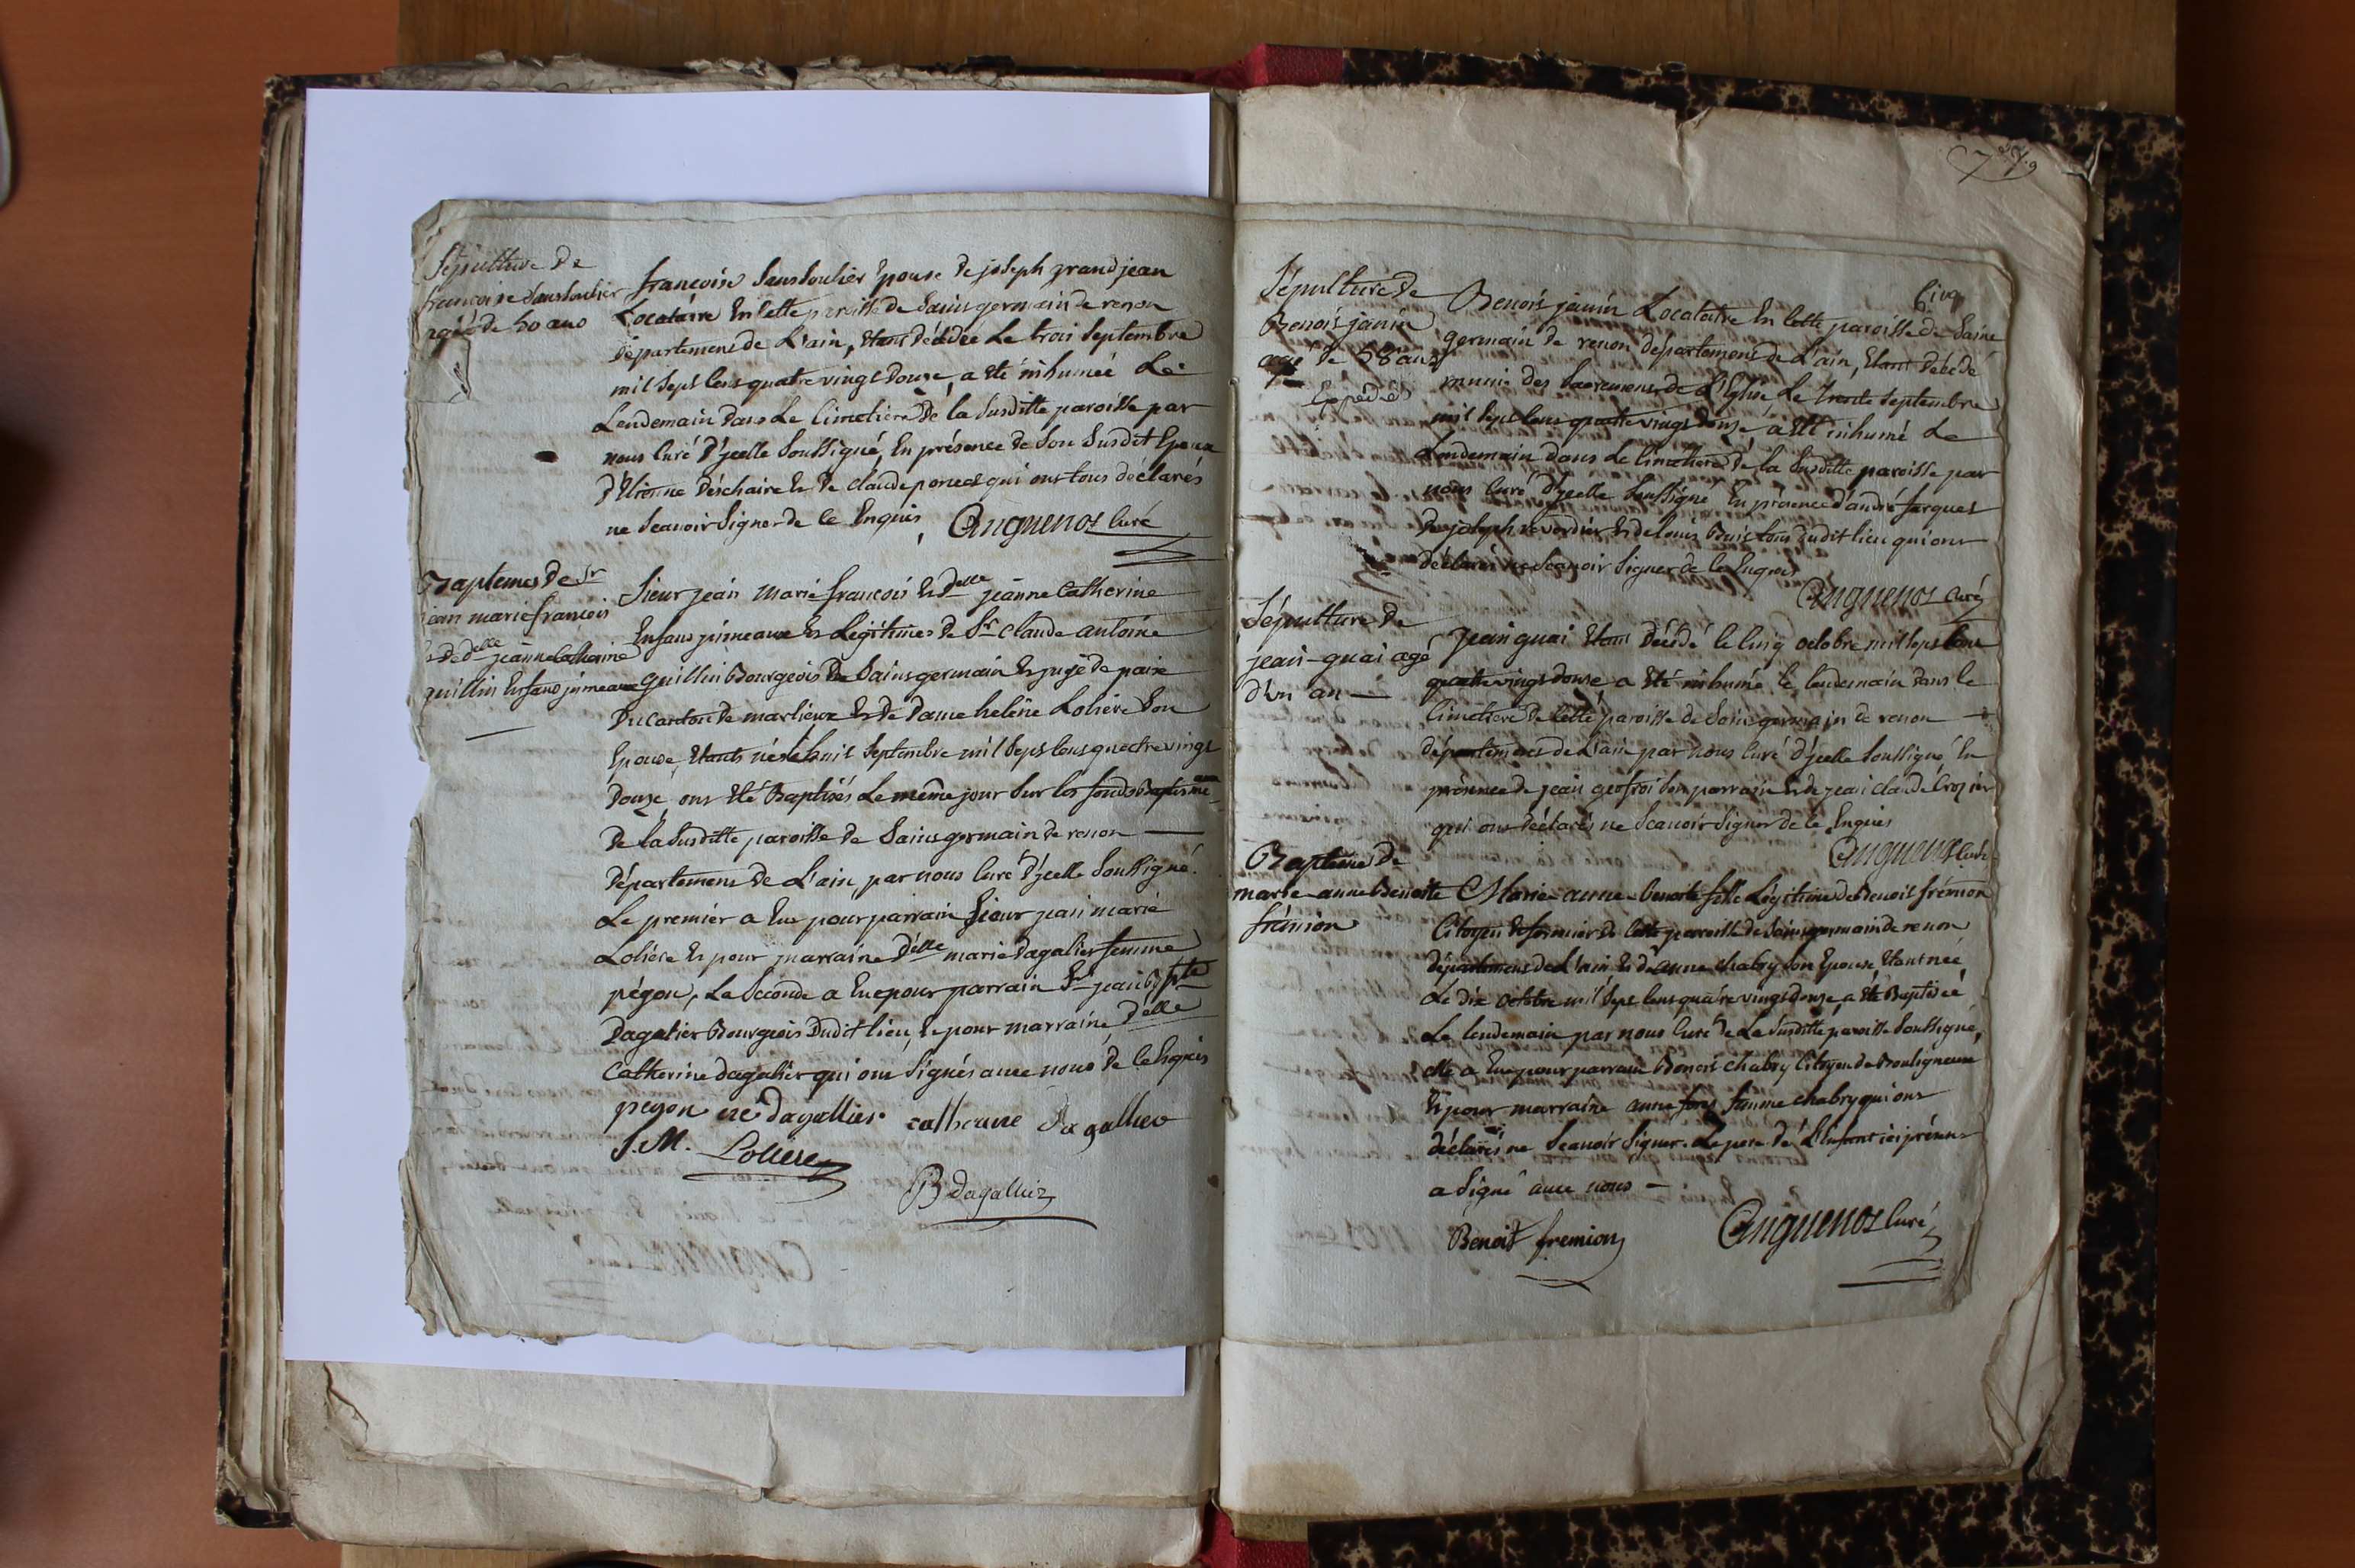 Sépulture de
francoise Sansoulier
agée de 50 ans
francoise Sansoulier Epouse de joseph grandjean
Locataire En Cette paroisse de Saint germain de renon
département de L'ain, Etant décédée Le trois Septembre
mil Sept Cent quatre vingt douze, a été inhumée Le
Lendemain dans Le Cimetière de la Susditte paroisse par
nous Curé d'ycelle Soussigné, En présence de Son Susdit Epoux
d'Etienne deschaire Et de claude qui ont tous déclarés
ne Scavoir Signer de ce Enquis, Cuguenot Curé
Baptemes de Sr
jean marie francois
Et de delle jeanne Catherine
guillin Enfans jumeaux
Sieur jean marie francois Et delle jeanne Catherine
Enfans jumeaux Et Légitimes de Sr claude antoine
guillin Bourgeois de Saint germain Et juge de paix
du Canton de marlieux Et de dame helene Loliere Son
Epouse, Etants nés le huit Septembre mil Sept Cent quatre vingt
douze, ont été Baptisés Le même jour Sur les fonds Baptismaux
de la Susditte paroisse de Saint germain de renon —
département de L'ain, par nous Curé d'ycelle Soussigné.
Le premier a Eut pour parrain Sieur jean marie
Loliere Et pour marraine delle marie dagalier femme
pégon, La Seconde a Eue pour parrain Sr jean Bpte
dagalier Bourgeois dudit lieu, Et pour marraine delle
Catherine dagalier qui ont Signés avec nous de ce Enquis
pegon né dagallier catherine dagallier
J. M. Loliere
B dagallier
Cinq
Sépulture de
Benoit janin
agé de 58 ans
Expédié
Benoit janin Locataire En Cette paroisse de Saint
germain de renon département de L'ain, Etant décédé
muni des Sacremens de L'Eglise Le trente Septembre
mil Sept Cent quatre vingt douze a été inhumé Le
Lendemain dans Le Cimetiere de la Susditte paroisse par
nous Curé d'ycelle Soussigné En présence d'andré farques
de joseph reverdier Et de Louis Buis tous dudit lieu qui ont
déclarés ne Scavoir Signer de ce Enquis
Cuguenot Curé
Sépulture de
jean-quai agé
d'un an —
Jean quai Etant décédé le Cinq octobre mil Sept Cent
quatre vingt douze, a été inhumé le lendemain dans le
Cimetiere de Cette paroisse de Saint germain de renon —
département de L'ain par nous Curé d'ycelle Soussigné, En
présence de jean geofroi Son parrain Et de jean claude Crozier
qui ont déclarés ne Scavoir Signer de ce Enquis
Cuguenot Curé
Bapteme de
marie-anne Benoite
frémion
Marie-anne-benoite fille Légitime de Benoit frémion
Citoyen Et fermier de Cette paroisse de Saint germain de renon
département de L'ain Et de anne chabry Son Epouse, Etant née
Le dix octobre mil Sept Cent quatre vingt douze, a été Baptisée
Le lendemain par nous Curé de La Susditte paroisse Soussigné,
Elle a Eue pour parrain Benoit chabry Citoyen de Bouligneux
Et pour marraine anne femme chabry qui ont
déclarés ne Scavoir Signer. Le pere de L'Enfant ici présent
a Signé avec nous —
Benoit fremion Cuguenot Curé